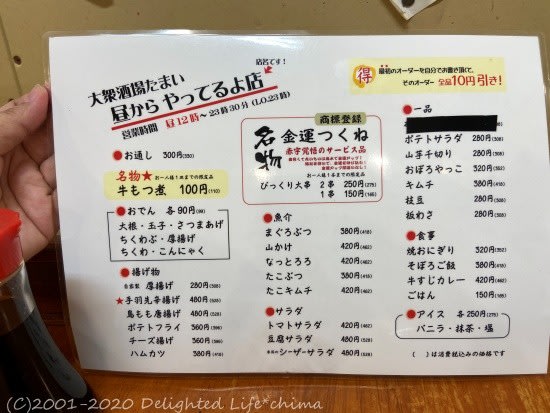 店名です!
大衆酒場たまい
昼から やってるよ店
営業時間 昼12時〜23時30分(L.O.23時)
得
最初のオーダーを自分でお書き頂くと、
そのオーダー 全品10円引き!
●お通し 300円(330)
名物★ お一人様1本までの限定品
牛もつ煮 100円(110)
●おでん 各90円(99)
大根・玉子・さつまあげ
ちくわぶ・厚揚げ
ちくわ・こんにゃく
●揚げ物
自家製 厚揚げ 280円(308)
★手羽先辛揚げ 480円(528)
鳥もも唐揚げ 480円(528)
ポテトフライ 360円(396)
チーズ揚げ 360円(396)
ハムカツ 380円(418)
商標登録
名物 金運つくね
赤字覚悟のサービス品
お一人様1本までの限定品
びっくり大串 2串 250円(275)
1串 150円(165)
●魚介
まぐろぶつ 380円(418)
山かけ 420円(462)
なっとろろ 420円(462)
たこぶつ 380円(418)
たこキムチ 420円(462)
●サラダ
トマトサラダ 420円(462)
豆腐サラダ 480円(528)
シーザーサラダ 480円(528)
●一品
ポテトサラダ 280円(308)
山芋千切り 280円(308)
おぼろやっこ 320円(352)
キムチ 380円(418)
枝豆 280円(308)
板わさ 280円(308)
●食事
焼おにぎり 320円(352)
そぼろご飯 380円(418)
牛すじカレー 420円(462)
ごはん 150円(165)
●アイス 各250円(275)
バニラ・抹茶・塩
( )は消費税込みの価格です
(C)2001-2020 Delighted Life*chima